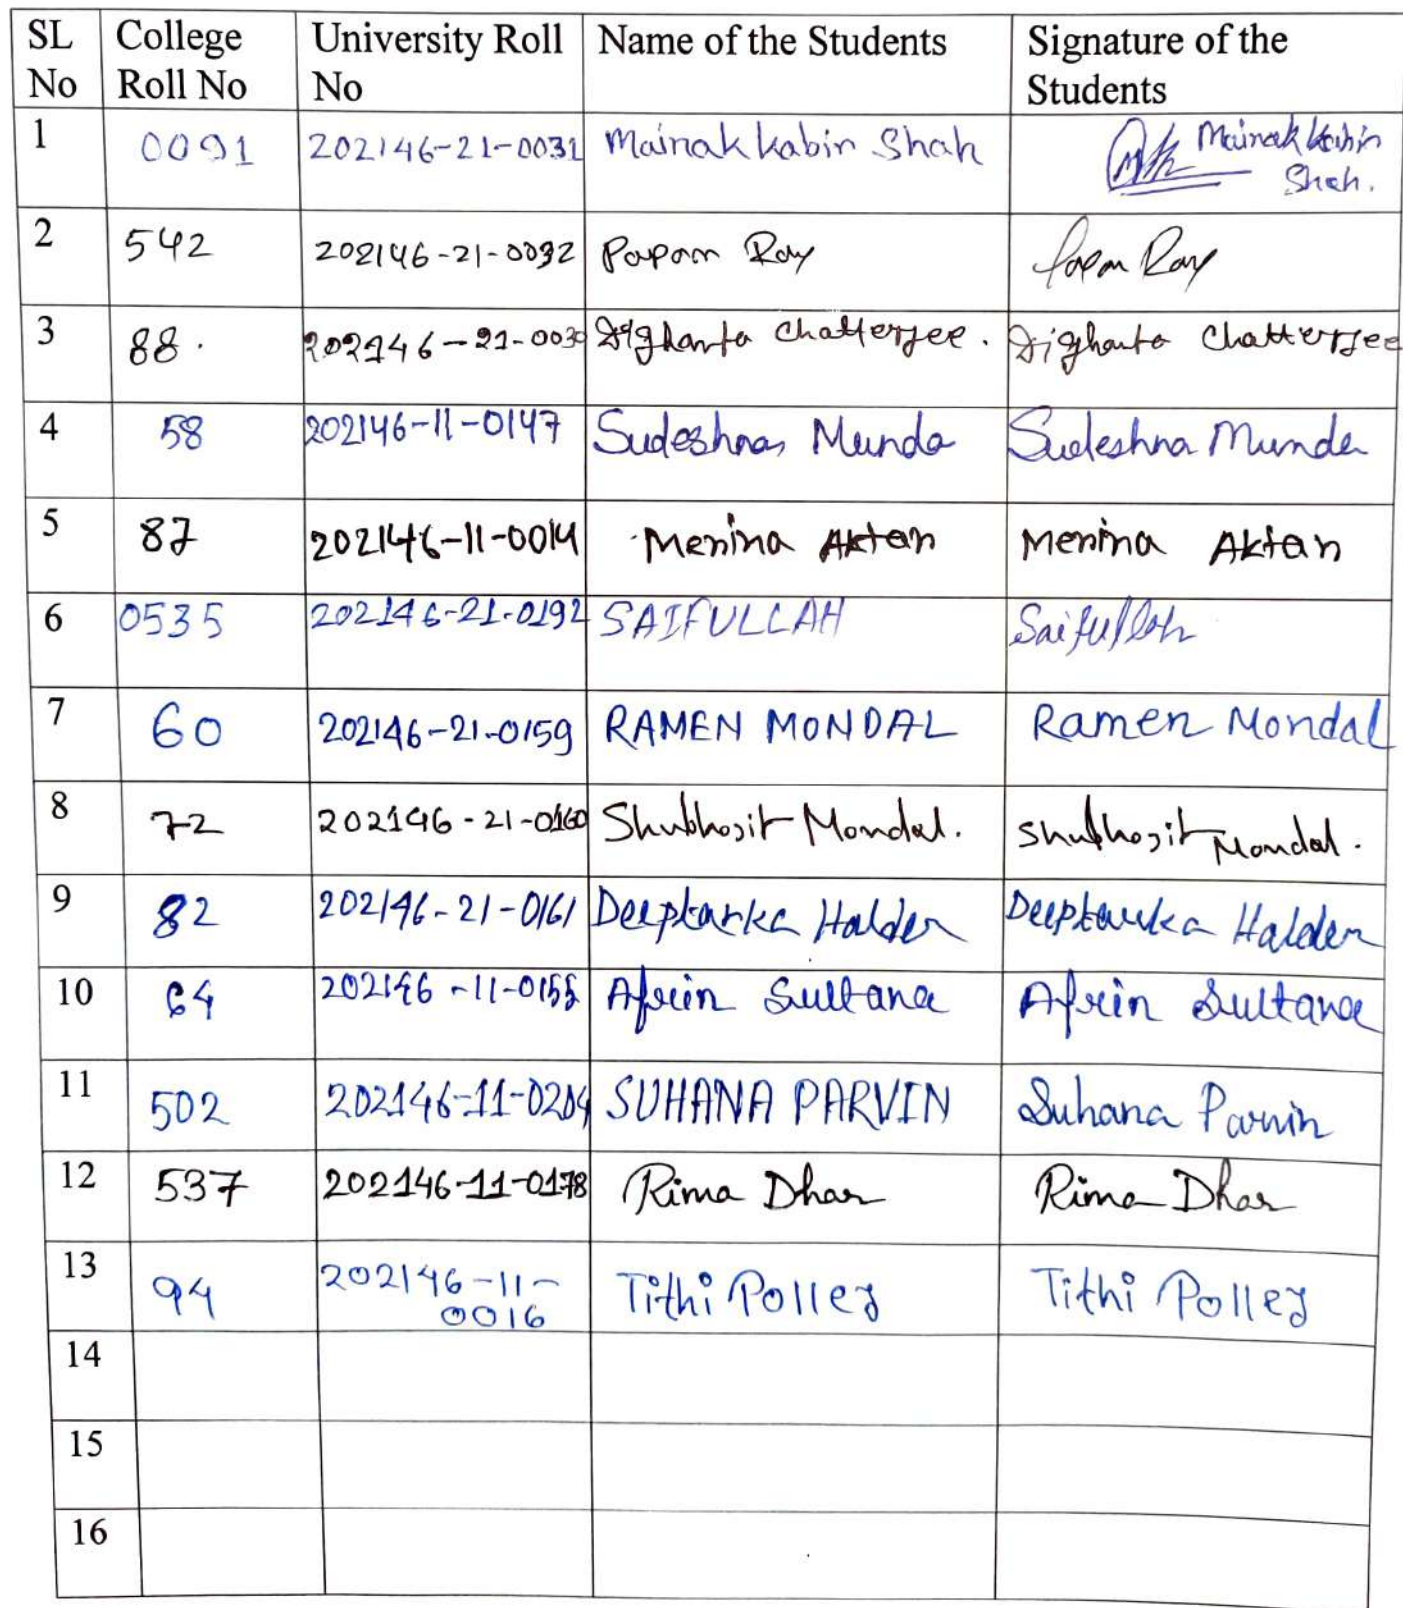 SL No | College Roll No | University Roll No | Name of the Students | Signature of the Students
1 | 0091 | 202146-21-0031 | Mainak kabir Shah | Mainak Kabir Shah.
2 | 542 | 202146-21-0032 | Papan Roy | Papan Roy
3 | 88. | 202146-21-0030 | Dighanta Chatterjee. | Dighanta Chatterjee
4 | 58 | 202146-11-0147 | Sudeshna Munda | Sudeshna Munda
5 | 87 | 202146-11-0014 | Menina Aktar | Menina Aktar
6 | 0535 | 202146-21-0192 | SAIFULLAH | Saifullah
7 | 60 | 202146-21-0159 | RAMEN MONDAL | Ramen Mondal
8 | 72 | 202146-21-0160 | Shubhojit Mondal. | Shubhojit Mondal.
9 | 82 | 202146-21-0161 | Deeptarka Halder | Deeptarka Halder
10 | 64 | 202146-11-0155 | Afrin Sultana | Afrin Sultana
11 | 502 | 202146-11-0204 | SUHANA PARVIN | Suhana Parvin
12 | 537 | 202146-11-0178 | Rima Dhar | Rima Dhar
13 | 94 | 202146-11-0016 | Tithi Polley | Tithi Polley
14
15
16